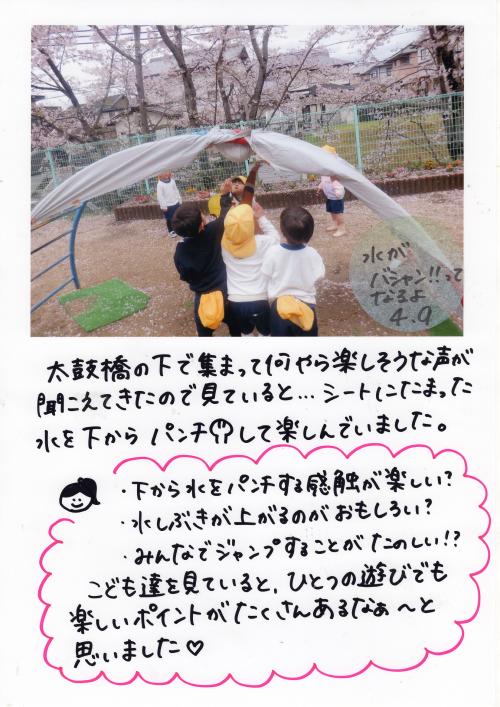 水が
バシャン!!って
なるよ
4.9
太鼓橋の下で集まって何やら楽しそうな声が
聞こえてきたので見ていると… シートにたまった
水を下から パンチして楽しんでいました。
・下から水をパンチする感触が楽しい?
・水しぶきが上がるのが おもしろい?
・みんなでジャンプすることが たのしい!?
こども達を見ていると、ひとつの遊びでも
楽しいポイントがたくさんあるなぁ〜と
思いました♡